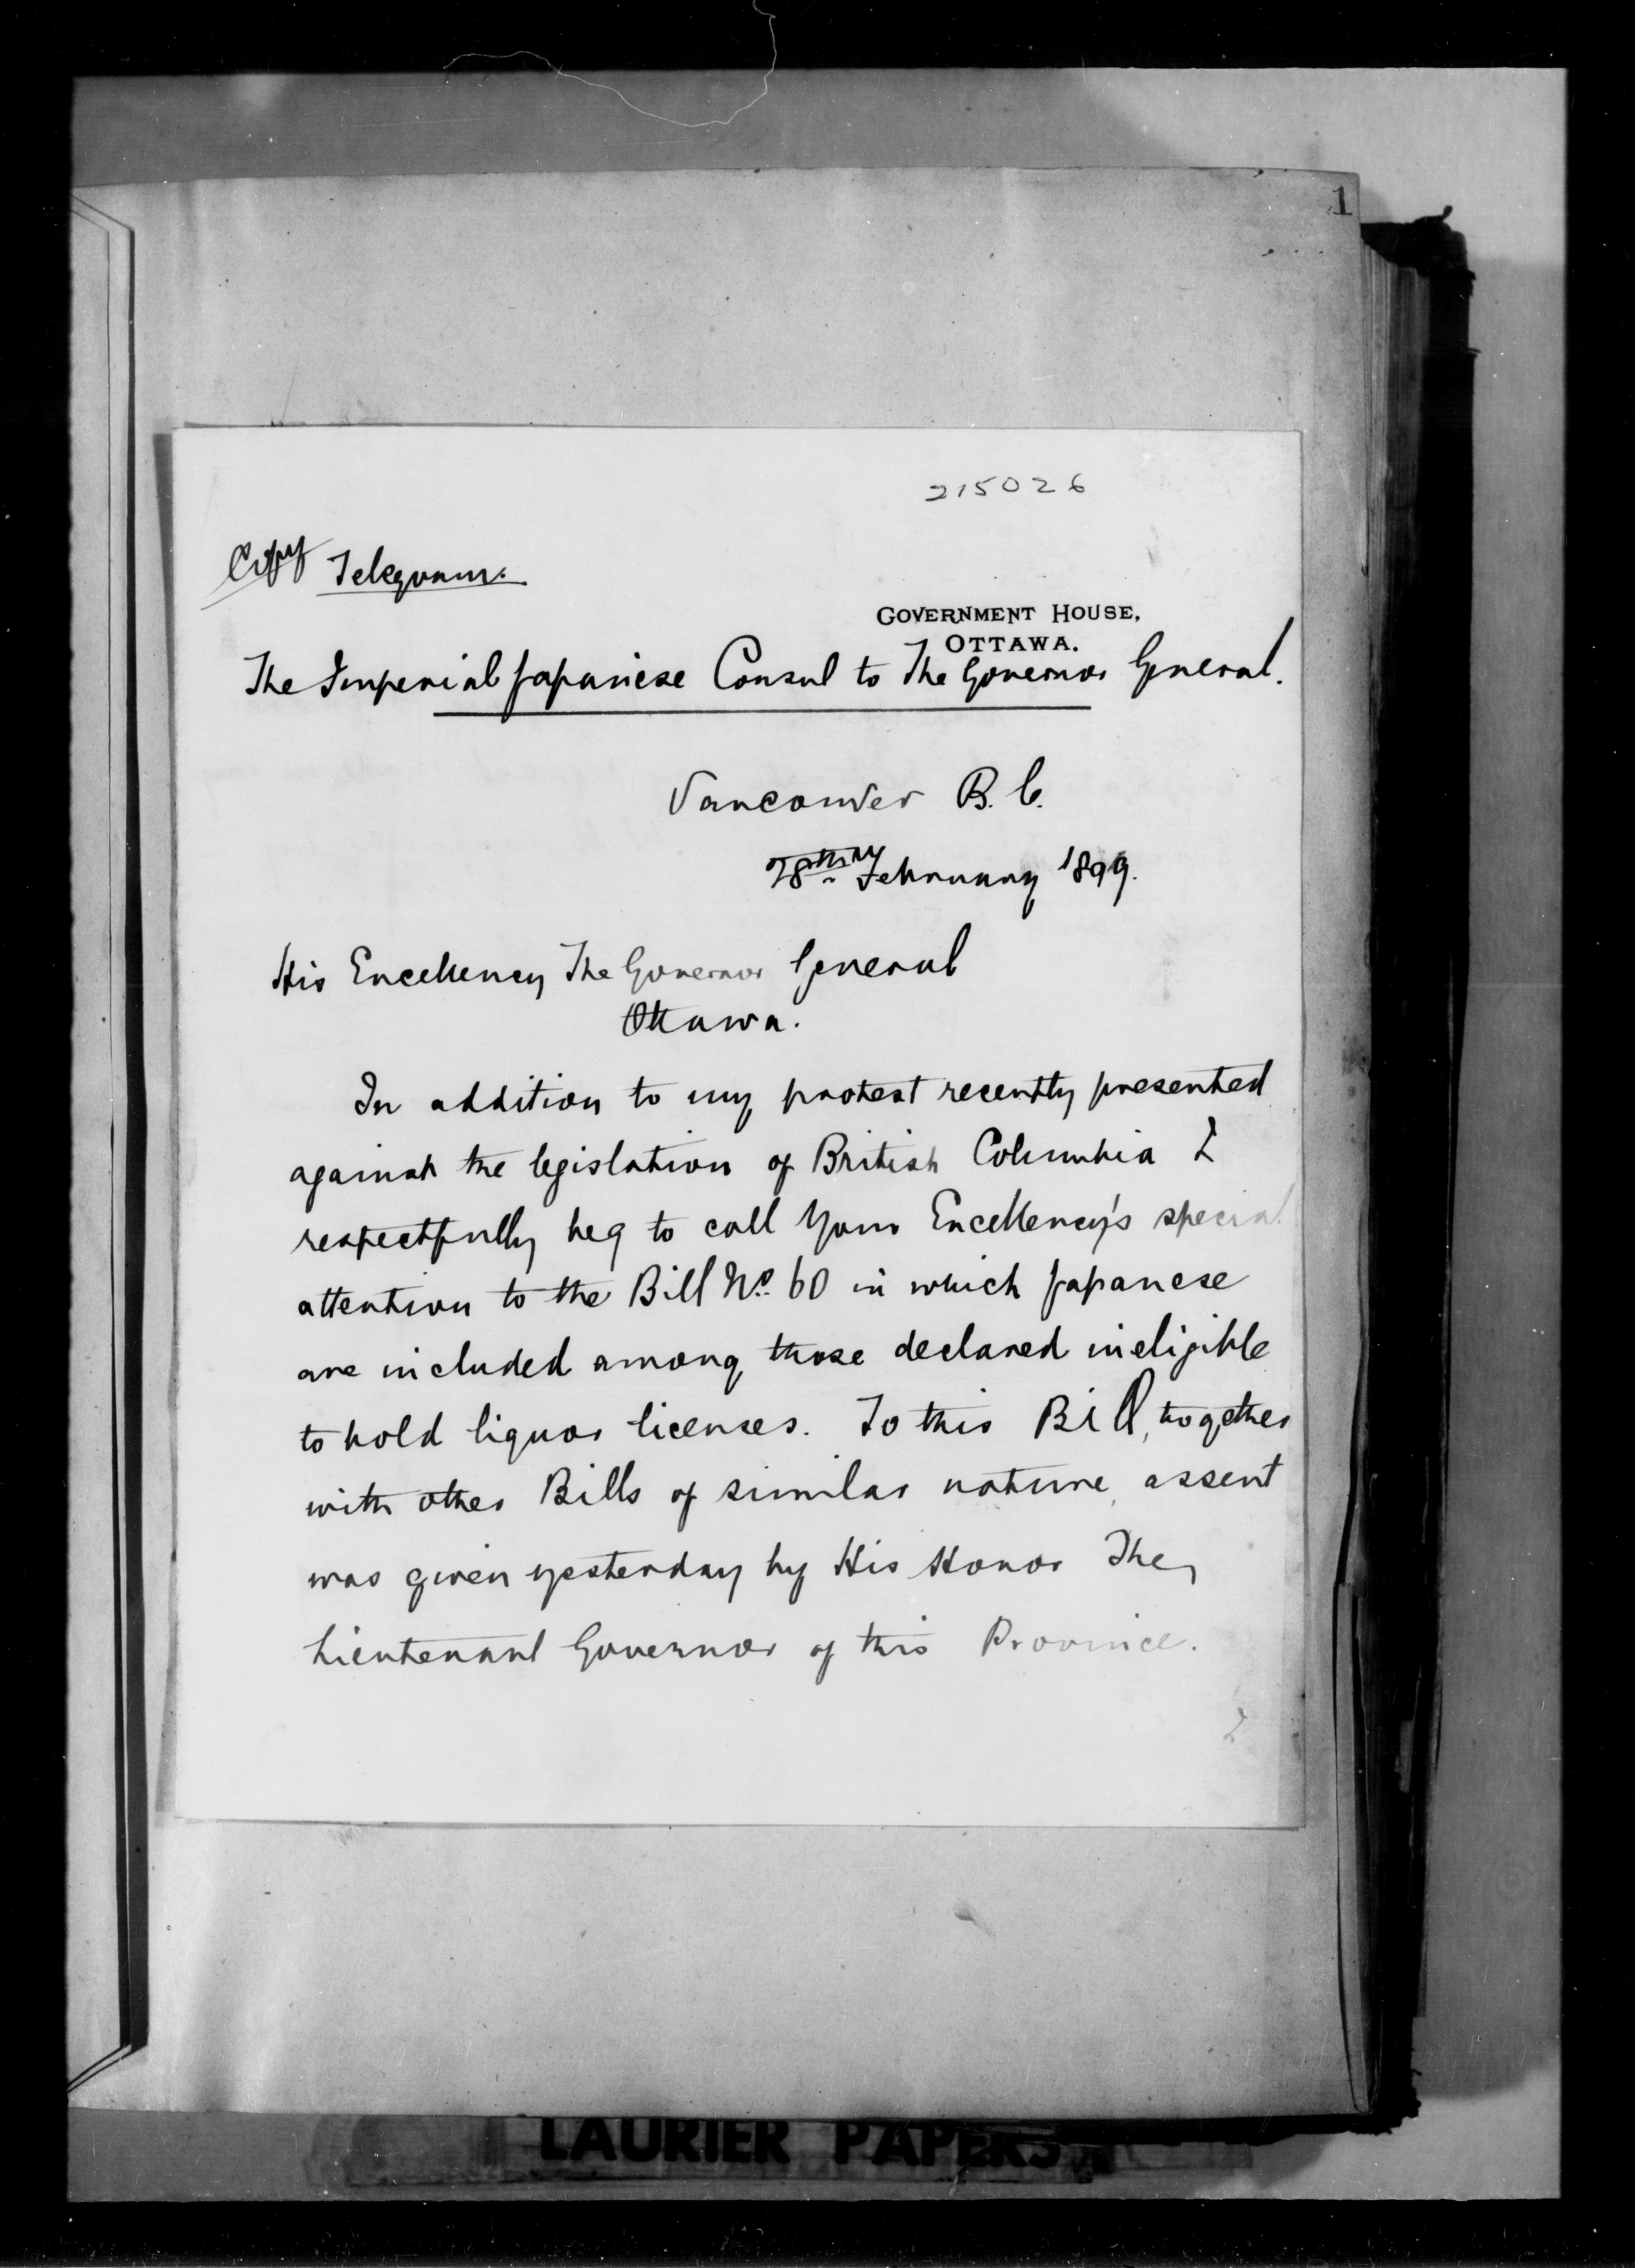 1
215026
Copy Telegram.
GOVERNMENT HOUSE,
OTTAWA.
The Imperial Japanese Consul to The Governor General.
Vancouver B.C.
28th February 1899.
His Excellency The Governor General
Ottawa.
In addition to my protest recently presented
against the legislation of British Columbia I
respectfully beg to call Your Excellency's special
attention to the Bill No. 60 in which Japanese
are included among those declared ineligible
to hold liquor licenses. To this Bill, together
with other Bills of similar nature, assent
was given yesterday by His Honor The
Lieutenant Governor of this Province.
I
LAURIER PAPERS